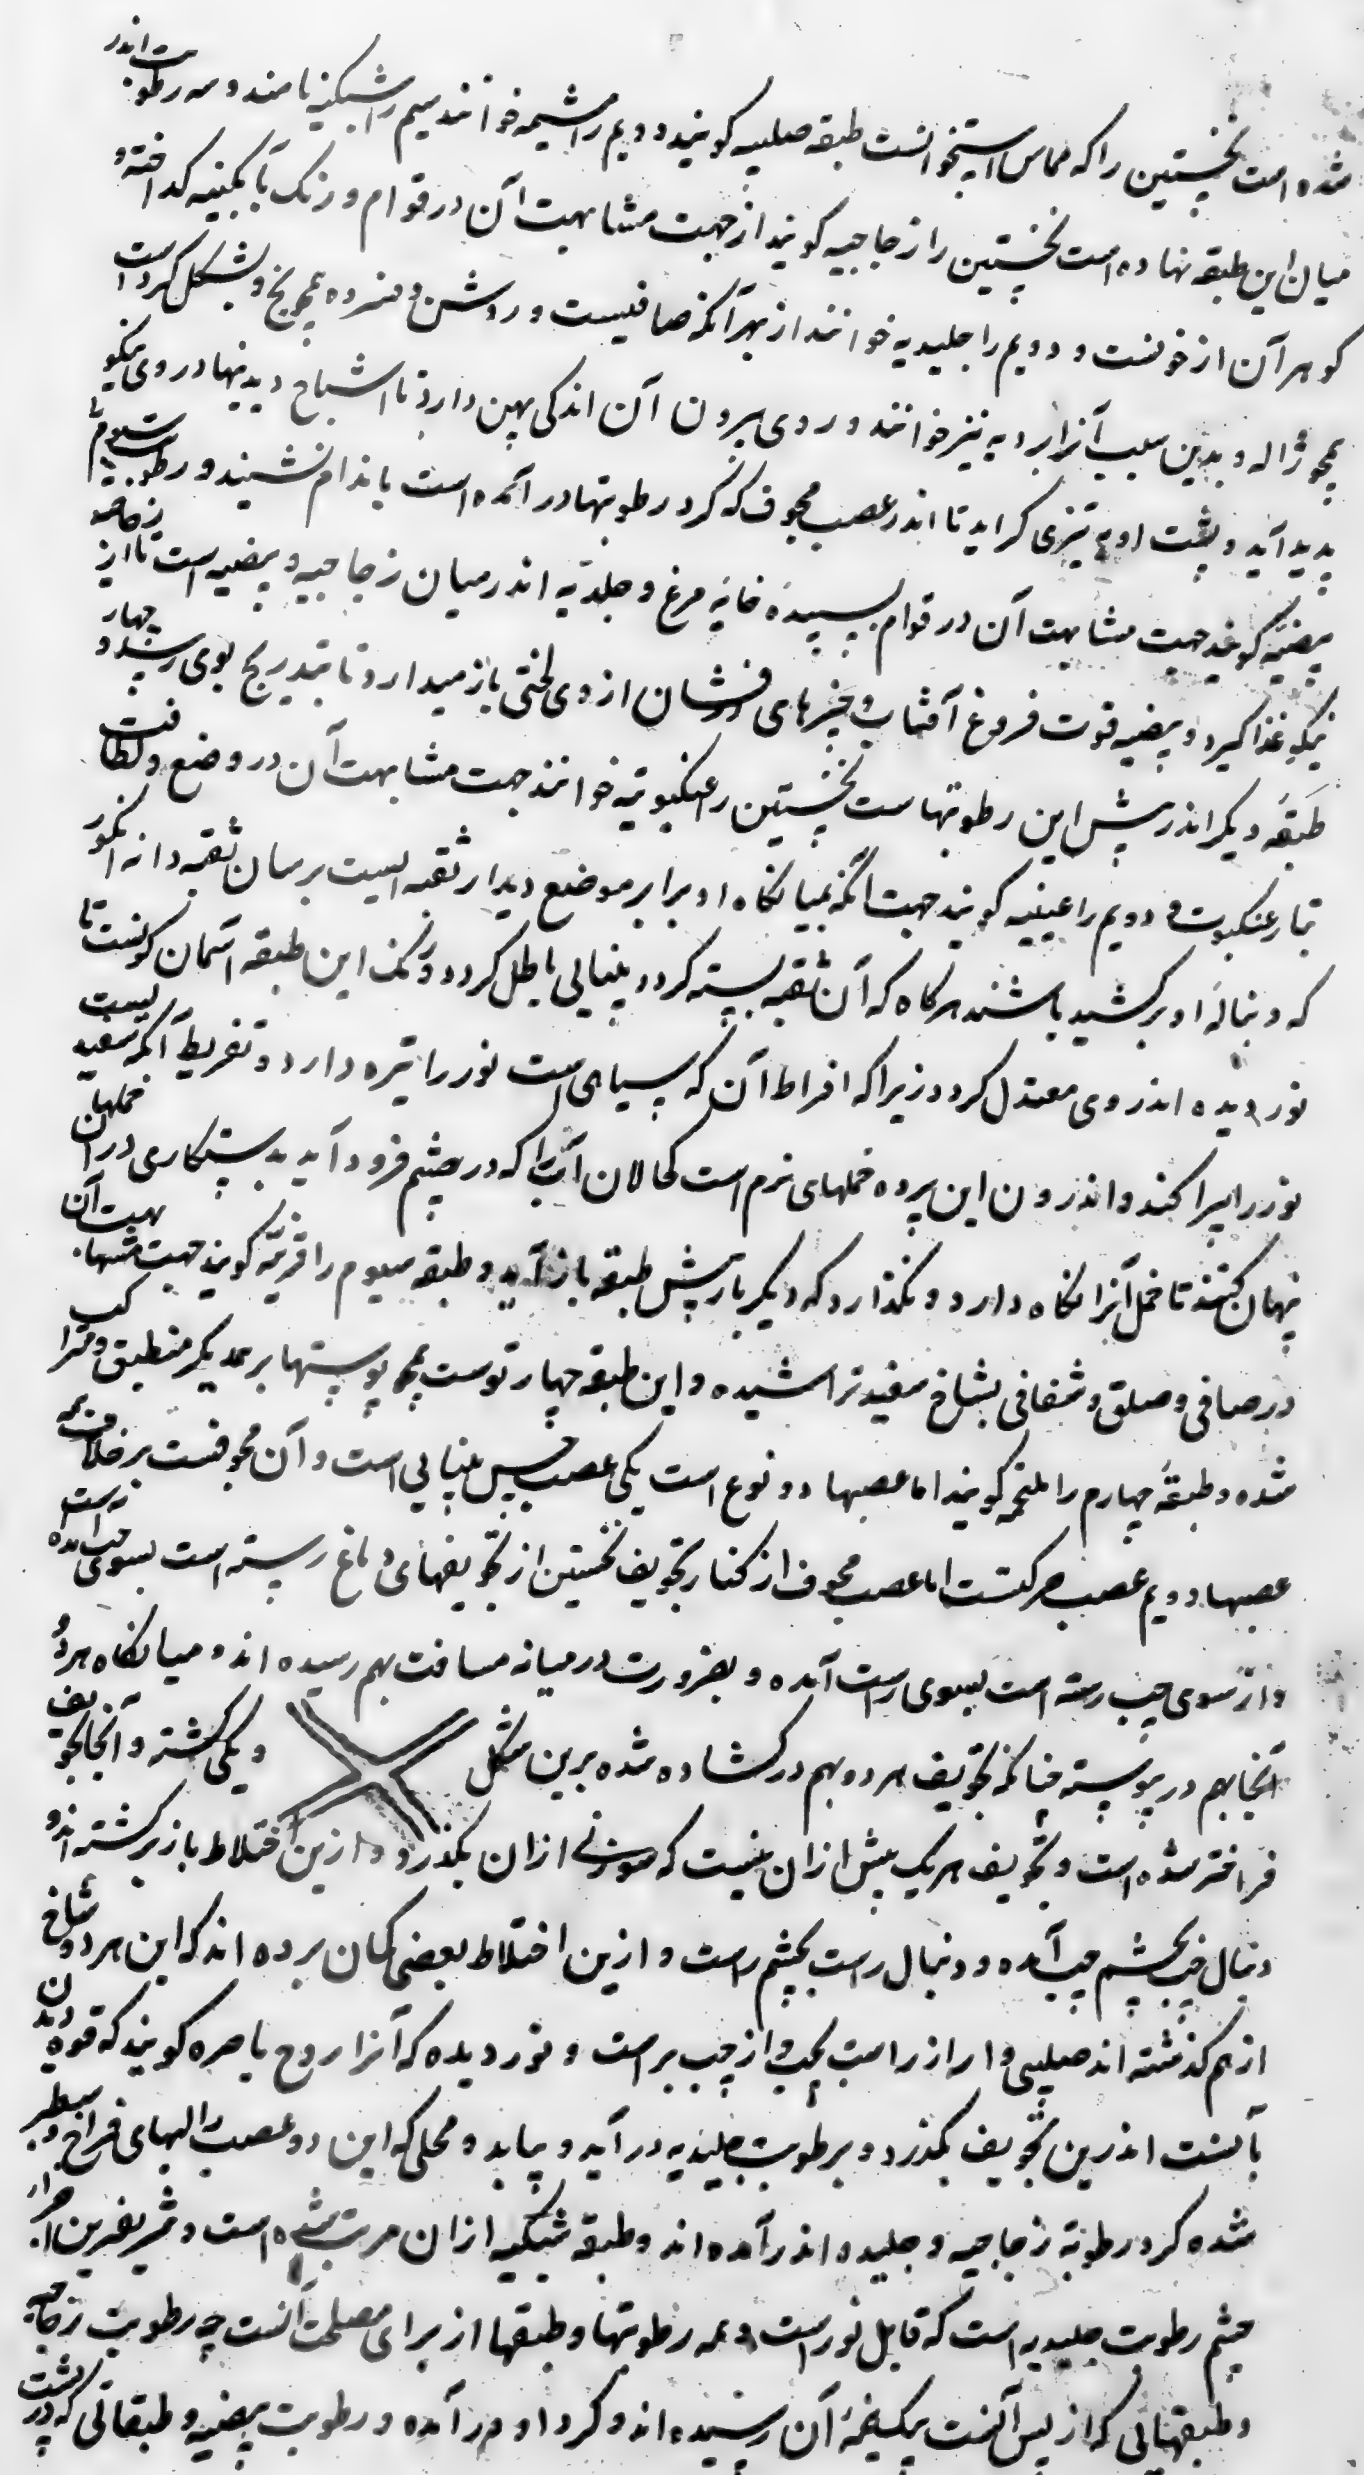 شده است نخستین را که مماس استخوانست طبقه صلبیه گویند و دویم را مشیمه خوانند سیم را شبکیه نامند و سه رطوبت اندر
میان این طبقه نهاده است نخستین را زجاجیه گویند از جهت مشابهت آن در قوام و رنک بآبکینه کداخته و
کوهر آن از خونست و دویم را جلیدیه خوانند از بهر آنکه صافیست و روشن و فسرده همچو یخ و بشکل کرد است
همچو ژاله و بدین سبب آنرا بردیه نیز خوانند و روی بیرون آن اندکی پهن دارد تا اشباح دیدنیها در وی نیکو
پدید آید و پشت او به تیزی کراید تا اندر عصب مجوف که کرد رطوبتها در آمده است باندام نشیند و رطوبت سوم را
بیضیه کویند جهت مشابهت آن در قوام بسپیده خایه مرغ و جلدیه اندر میان زجاجیه و بیضیه است تا از زجاجیه
نیکو غذا کیرد و بیضیه قوت فروغ آفتاب و چیزهای درفشان از وی لختی باز میدارد تا بتدریج بوی رسد و چهار
طبقه دیکر اندر پیش این رطوبتهاست نخستین را عنکبوتیه خوانند جهت مشابهت آن در وضع و لطافت
بتار عنکبوت و دویم را عینیه کویند جهت آنکه بمیانکاه او برابر موضع دیدار ثقبه ایست برسان ثقبه دانه انکور
که دنباله او برکشید باشند هرکاه که آن ثقبه بسته کردد بینایی باطل کردد و رنک این طبقه آسمان کونست تا
نور دیده اندر وی معتدل کردد زیرا که افراط آن که سیاهی است نور را تیره دارد و تفریط آنکه سفید لیست
نور را پراکند و اندرون این پرده خملهای نرم است کحالان آب را که در چشم فرود آید بدستکاری در آن خملها
پنهان کنند تا خمل آنرا نکاه دارد و نکذارد که دیکر بار پیش طبقه باز آید و طبقه سیوم را قرنیه کویند جهت مشابهت آن
در صافی و صلق و شفافی بشاخ سفید تراشیده و این طبقه چهار توست همچو پوستها بر همدیکر منطبق و متراکب
شده و طبقه چهارم را ملتحمه کویند اما عصبها دو نوع است یکی عصب حس بینایی است و آن مجوفست بر خلاف همه
عصبها دویم عصب حرکتست اما عصب مجوف از کنار تجویف نخستین از تجویفهای دماغ رسته است بسوی چپ آمده
و از سوی چپ رسته است بسوی راست آمده و بضرورت در میانه مسافت بهم رسیده اند و میانکاه هر دو
آنجا بهم در پیوسته چنانکه تجویف هر دو بهم در کشاده شده برین شکل و یکی کشته و آنجا تجویف
فراختر شده است و تجویف هر یک بیش از آن نیست که سوزنی از آن بکذرد و ازین اختلاط باز برکشته اند و
دنبال چپ بچشم چپ آمده و دنبال راست بچشم راست و ازین اختلاط بعضی کمان برده اند که این هر دو شاخ
از هم کذشته اند صلیبی وار از راست بچپ و از چپ براست و نور دیده که آنرا روح باصره کویند که قوه دیدن
بآنست اندرین تجویف بکذرد و برطوبت جلیدیه در آید و بیابد و محلی که این دو عصب را لبهای فراخ و سطبر
شده کرد رطوبة زجاجیه و جلیده اندر آمده اند و طبقه شبکیه ازان مرتب شده است و شریفترین اجزای
چشم رطوبت جلیدیه است که قابل نور است و همه رطوبتها و طبقها از برای مصلحت آنست چه رطوبت زجاجیه
و طبقهایی که از پس آنست بیک نیمه آن رسیده اند و کرد او در آمده و رطوبت بیضیه و طبقاتی که در پشت